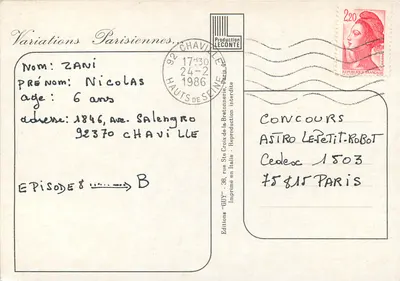 Variations Parisiennes
Production
LECONTE
92 CHAVILLE
17H30
24-2
1986
HAUTS DE SEINE
2,20
NOM: ZANI
PRÉNOM: NICOLAS
age: 6 ans
adresse: 1846, ave. SALENGRO
92370 CHAVILLE
EPISODE 8 ......→ B
Editions "GUY" - 38, rue Ste-Croix de la Bretonnerie, Paris
Imprimé en Italie - Reproduction interdite
CONCOURS
ASTRO LEPETIT-ROBOT
Cedex 1503
75815 PARIS